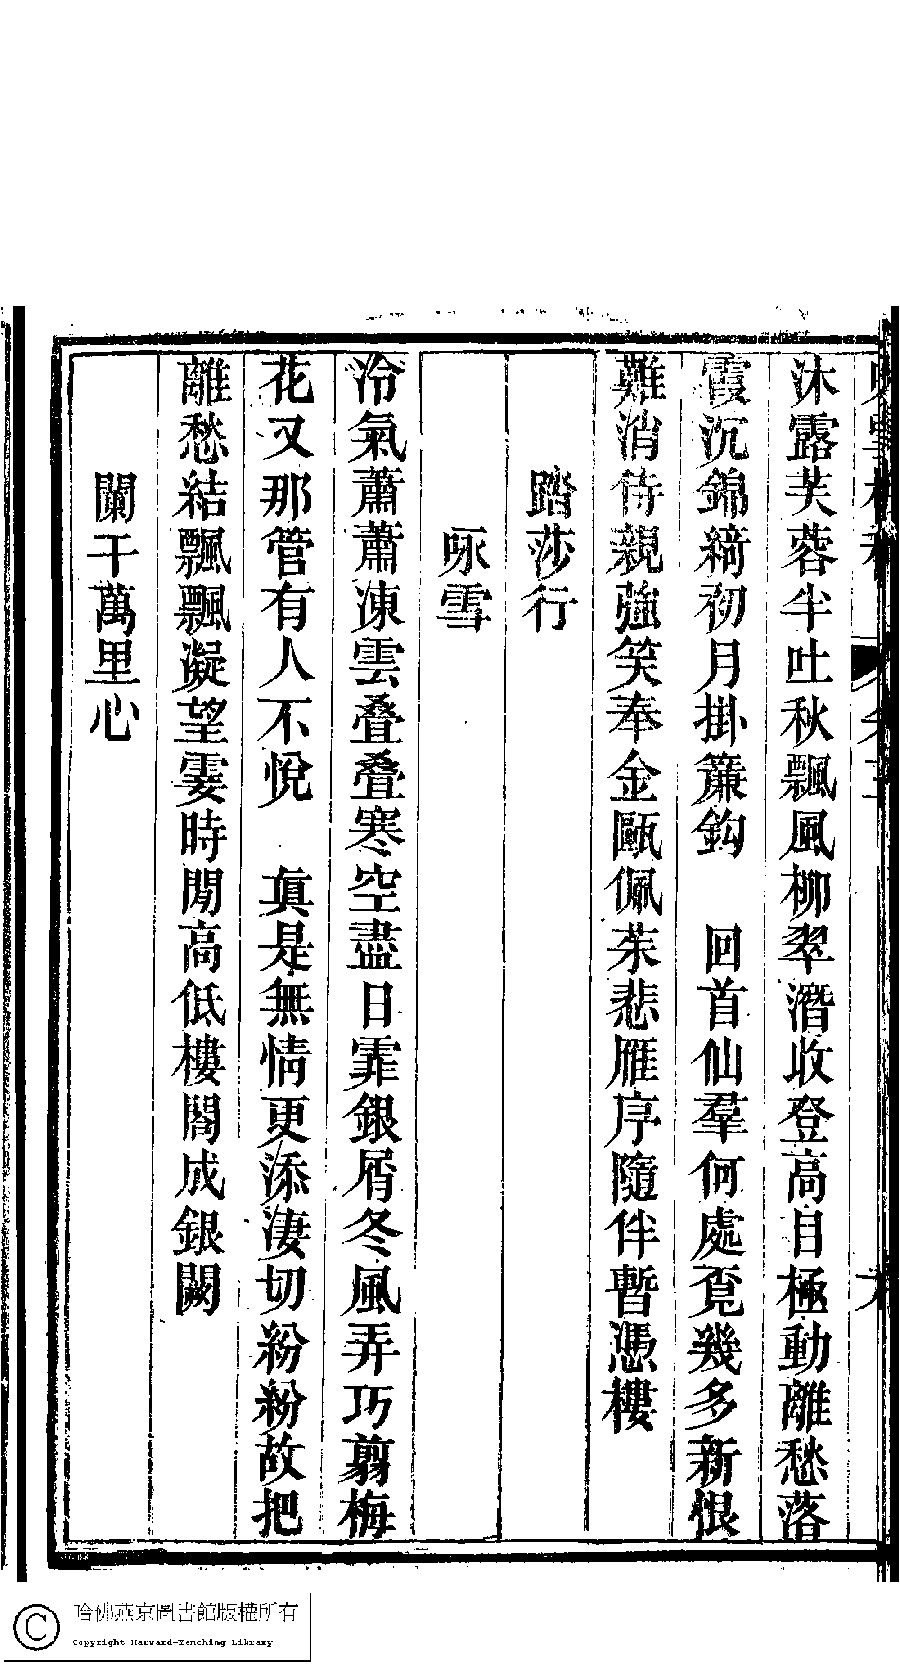 沐露芙蓉半吐秋飄風柳翠潛收登高目極動離愁落
霞沉錦綺初月掛簾鈎　回首仙羣何處覔幾多新恨
難消侍親強笑奉金甌佩茱悲雁序隨伴暫憑樓
踏莎行
咏雪
冷氣蕭蕭凍雲疊疊寒空盡日霏銀屑冬風弄巧翦梅
花又那管有人不悅　眞是無情更添淒切紛紛故把
離愁結飄飄凝望霎時閒高低樓閣成銀闕
闌干萬里心
哈佛燕京圖書館版權所有
Copyright Harvard-Yenching Library